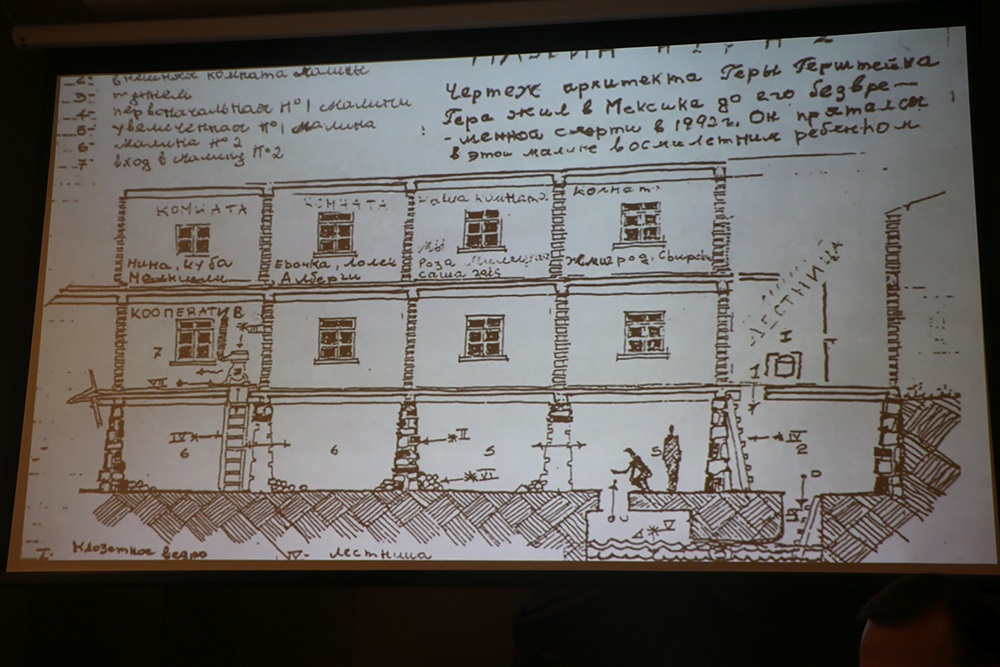 2: внешняя комната малины
3- туннель
4- первоначальная N°1 малина
5: увеличенная N°1 малина
6: малина N°2
7: вход в малину N°2
Чертеж архитекта Геры Герштейна
Гера жил в Мексика до его безвре-
-менной смерти в 1992г. Он прятался
в этой малине восмилетним ребенком
КОМНАТА
КОМНАТА
наша комната
комнат
Нина, Куба
ЕРочка, Лолек
Алберги
Мы
Роза
саша
Жмигрод,
КООПЕРАТИВ
ЛЕСТНИЦА
7
VII
I
1
IV
6
6
II
5
VI
5
IV
2
V
I- Клозетное ведро
IV- лестница